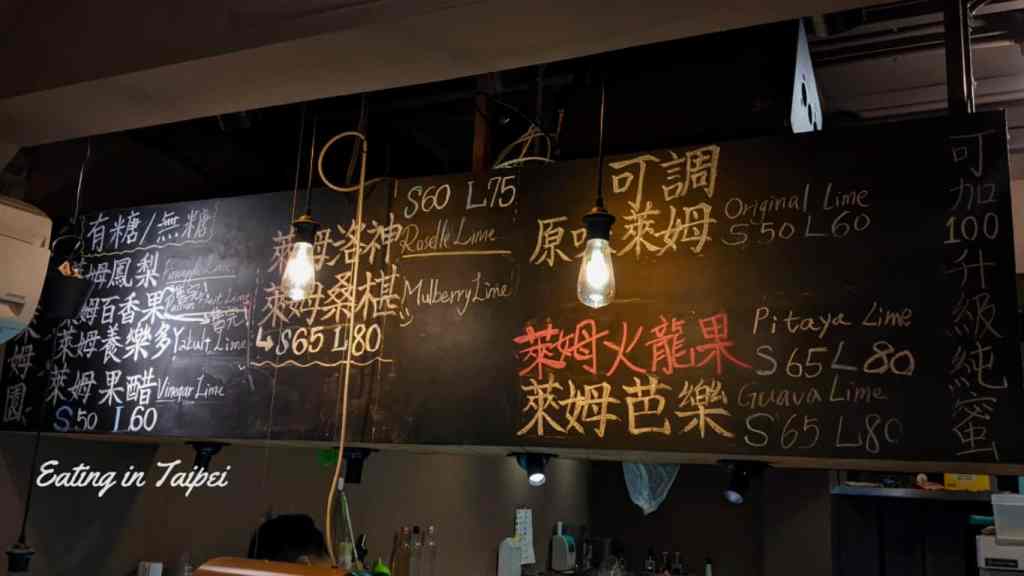 有糖/無糖
萊姆鳳梨 Pineapple Lime
萊姆百香果
萊姆養樂多 Yakult Lime
萊姆果醋 Vinegar Lime
S50 L60
S60 L75
萊姆洛神 Roselle Lime
萊姆桑椹 Mulberry Lime
S65 L80
可調
原味萊姆 Original Lime
S50 L60
萊姆火龍果 Pitaya Lime
S65 L80
萊姆芭樂 Guava Lime
S65 L80
可加100升級純蜜
姆園
Eating in Taipei